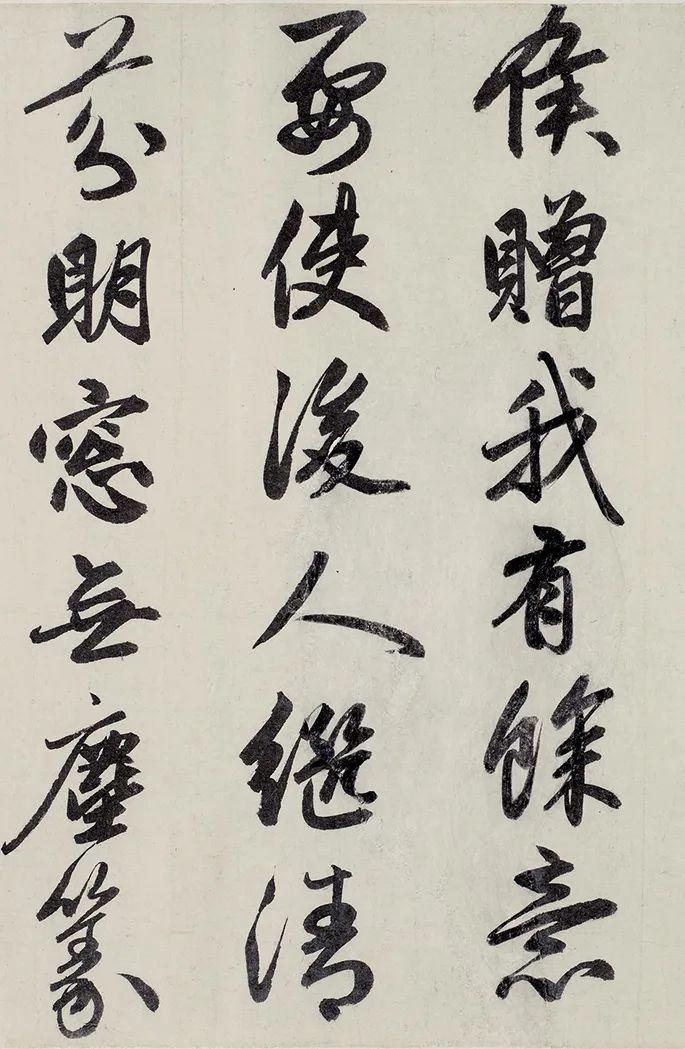 侯贈我有餘意
要使後人繼清
芬明窓無塵篆